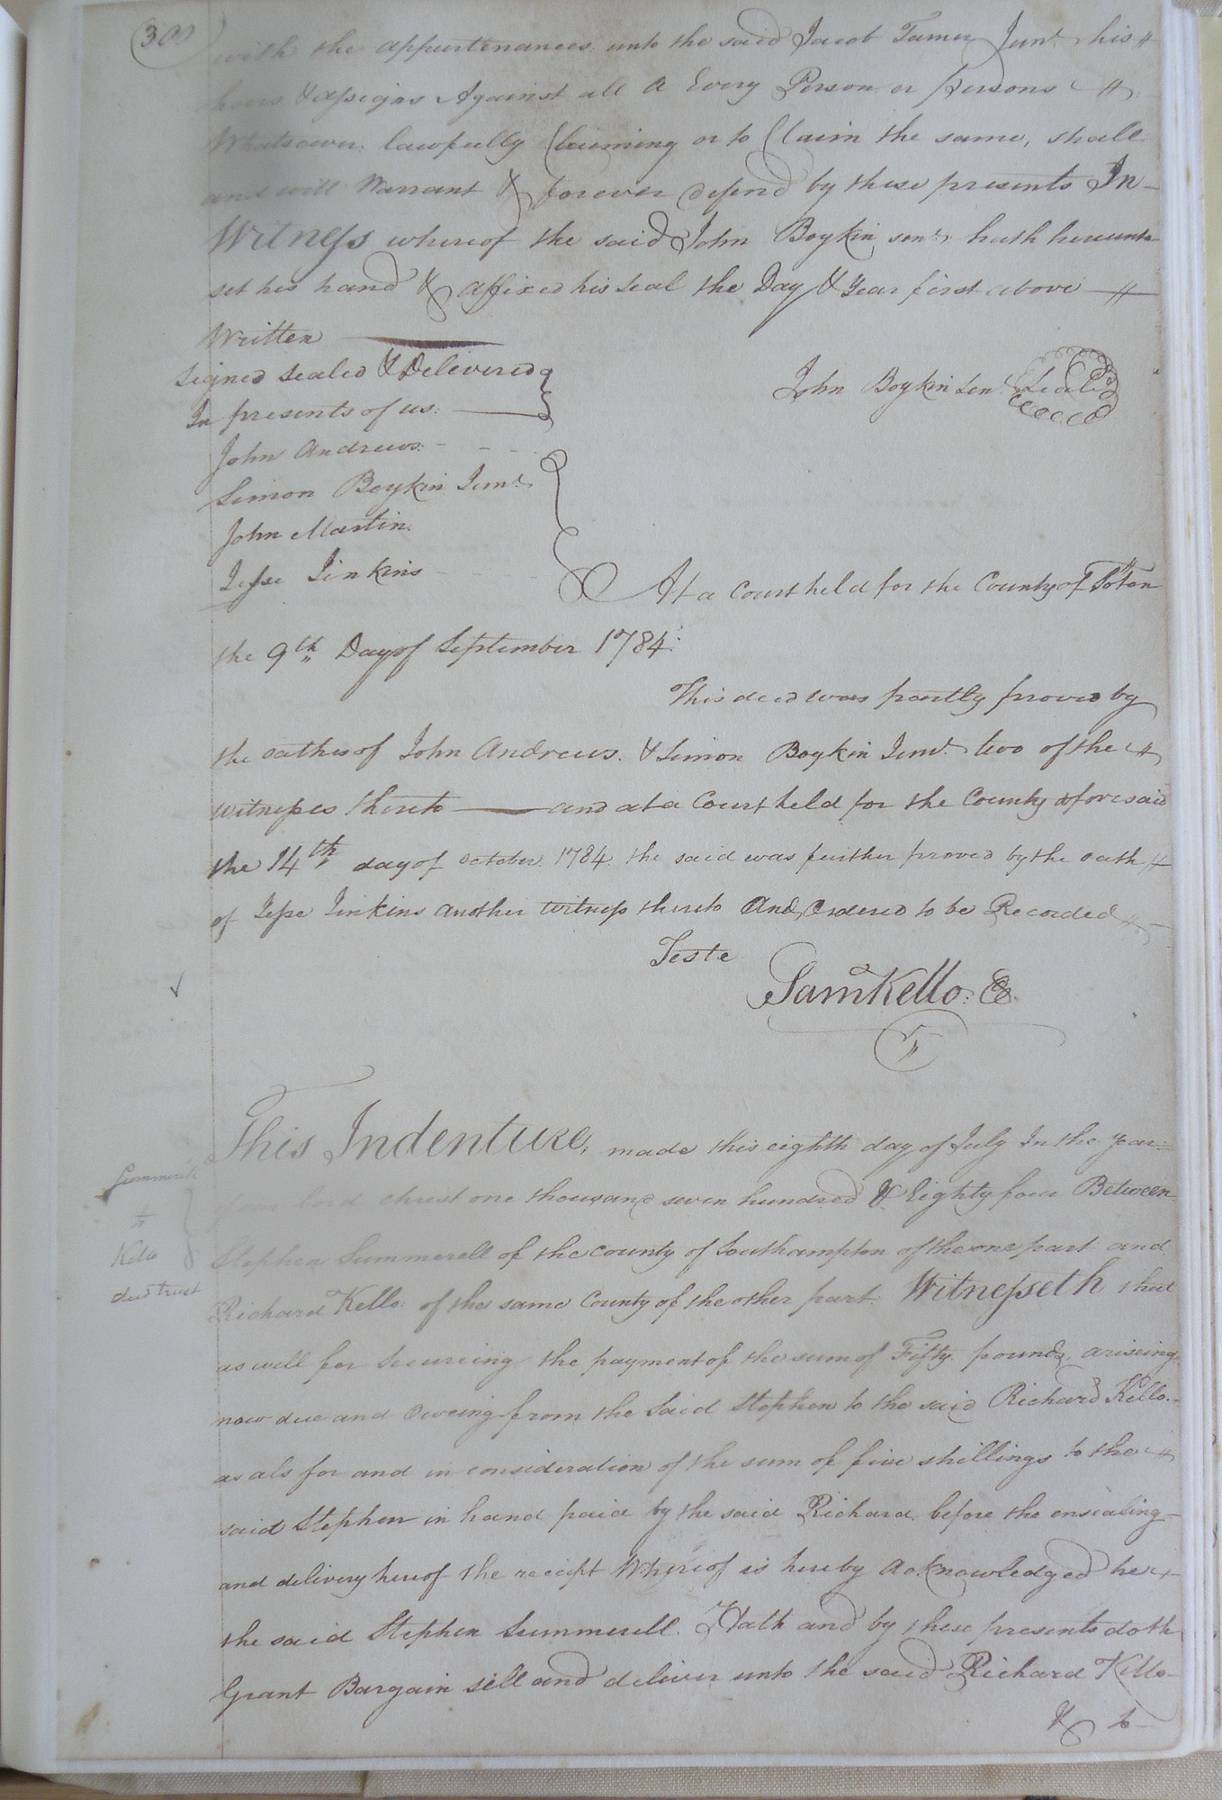 300
with the appurtenances unto the said Jacob Turner Junr. his
heirs & assigns Against all & Every Person or persons
Whatsoever lawfully Claiming or to Claim the same, shall
and will Warrant & forever defend by these presents In
Witness whereof the said John Boykin senr. hath hereunto
set his hand & affixed his seal the Day & Year first above
Written
Signed Sealed & Delivered
In presents of us.
John Boykin Senr. Seal
John Andrews
Simon Boykin Junr.
John Martin
Jesse Jinkins
At a Court held for the County of Soton
the 9th Day of September 1784.
This deed was partly proved by
the oathes of John Andrews. & Simon Boykin Junr. two of the
witnesses thereto and at a Court held for the County aforesaid
the 14th day of October 1784 the said was further proved by the oath
of Jesse Jinkins another witness thereto And Ordered to be Recorded
Teste
Saml Kello. C
This Indenture, made this eighth day of July In the year
lord christ one thousand seven hundred & Eighty four Between
Stephen Summerell of the county of Southampton of the one part and
Richard Kello of the same County of the other part. Witnesseth that
as well for Secureing the payment of the sum of Fifty pounds ariseing
now due and Oweing from the Said Stephen to the said Richard Kello.
as als for and in consideration of the sum of five shillings to the
said Stephen in hand paid by the said Richard before the ensealing
and delivery hereof the receipt Whereof is hereby acknowledged he
the said Stephen Summerell. Hath and by these presents doth
Grant Bargain sell and deliver unto the said Richard Kello
Summerell
to
Kello
deed trust